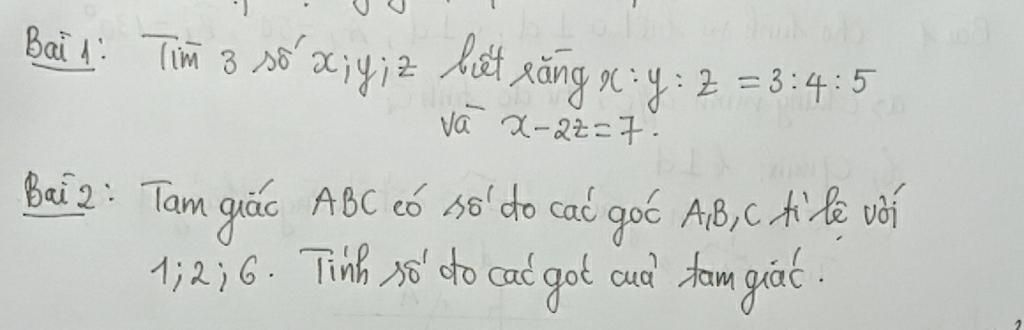 Bài 1: Tìm 3 số x; y; z biết rằng x : y : z = 3 : 4 : 5
và x - 2z = 7.
Bài 2: Tam giác ABC có số đo các góc A, B, C tỉ lệ với
1; 2; 6. Tính số đo các góc của tam giác.